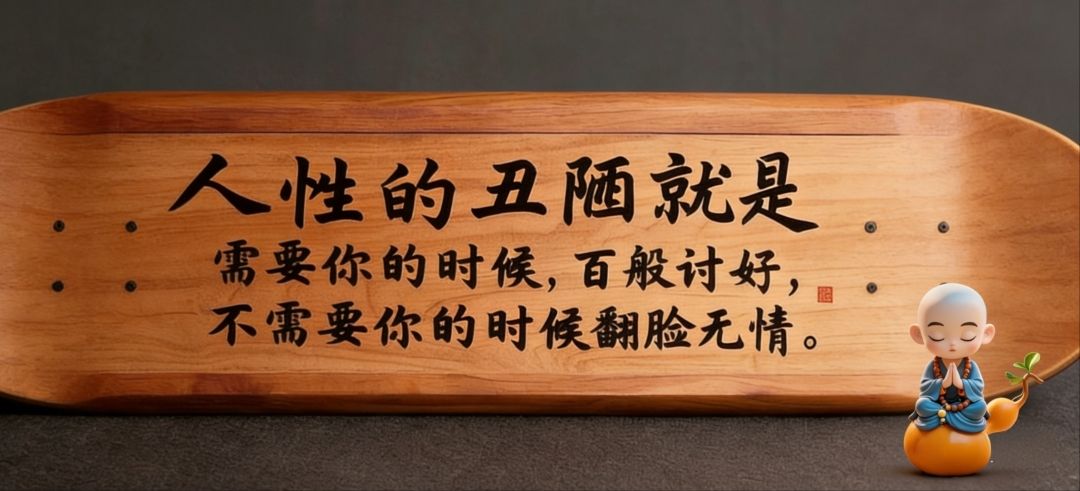 人性的丑陋就是
需要你的时候,百般讨好,
不需要你的时候翻脸无情。